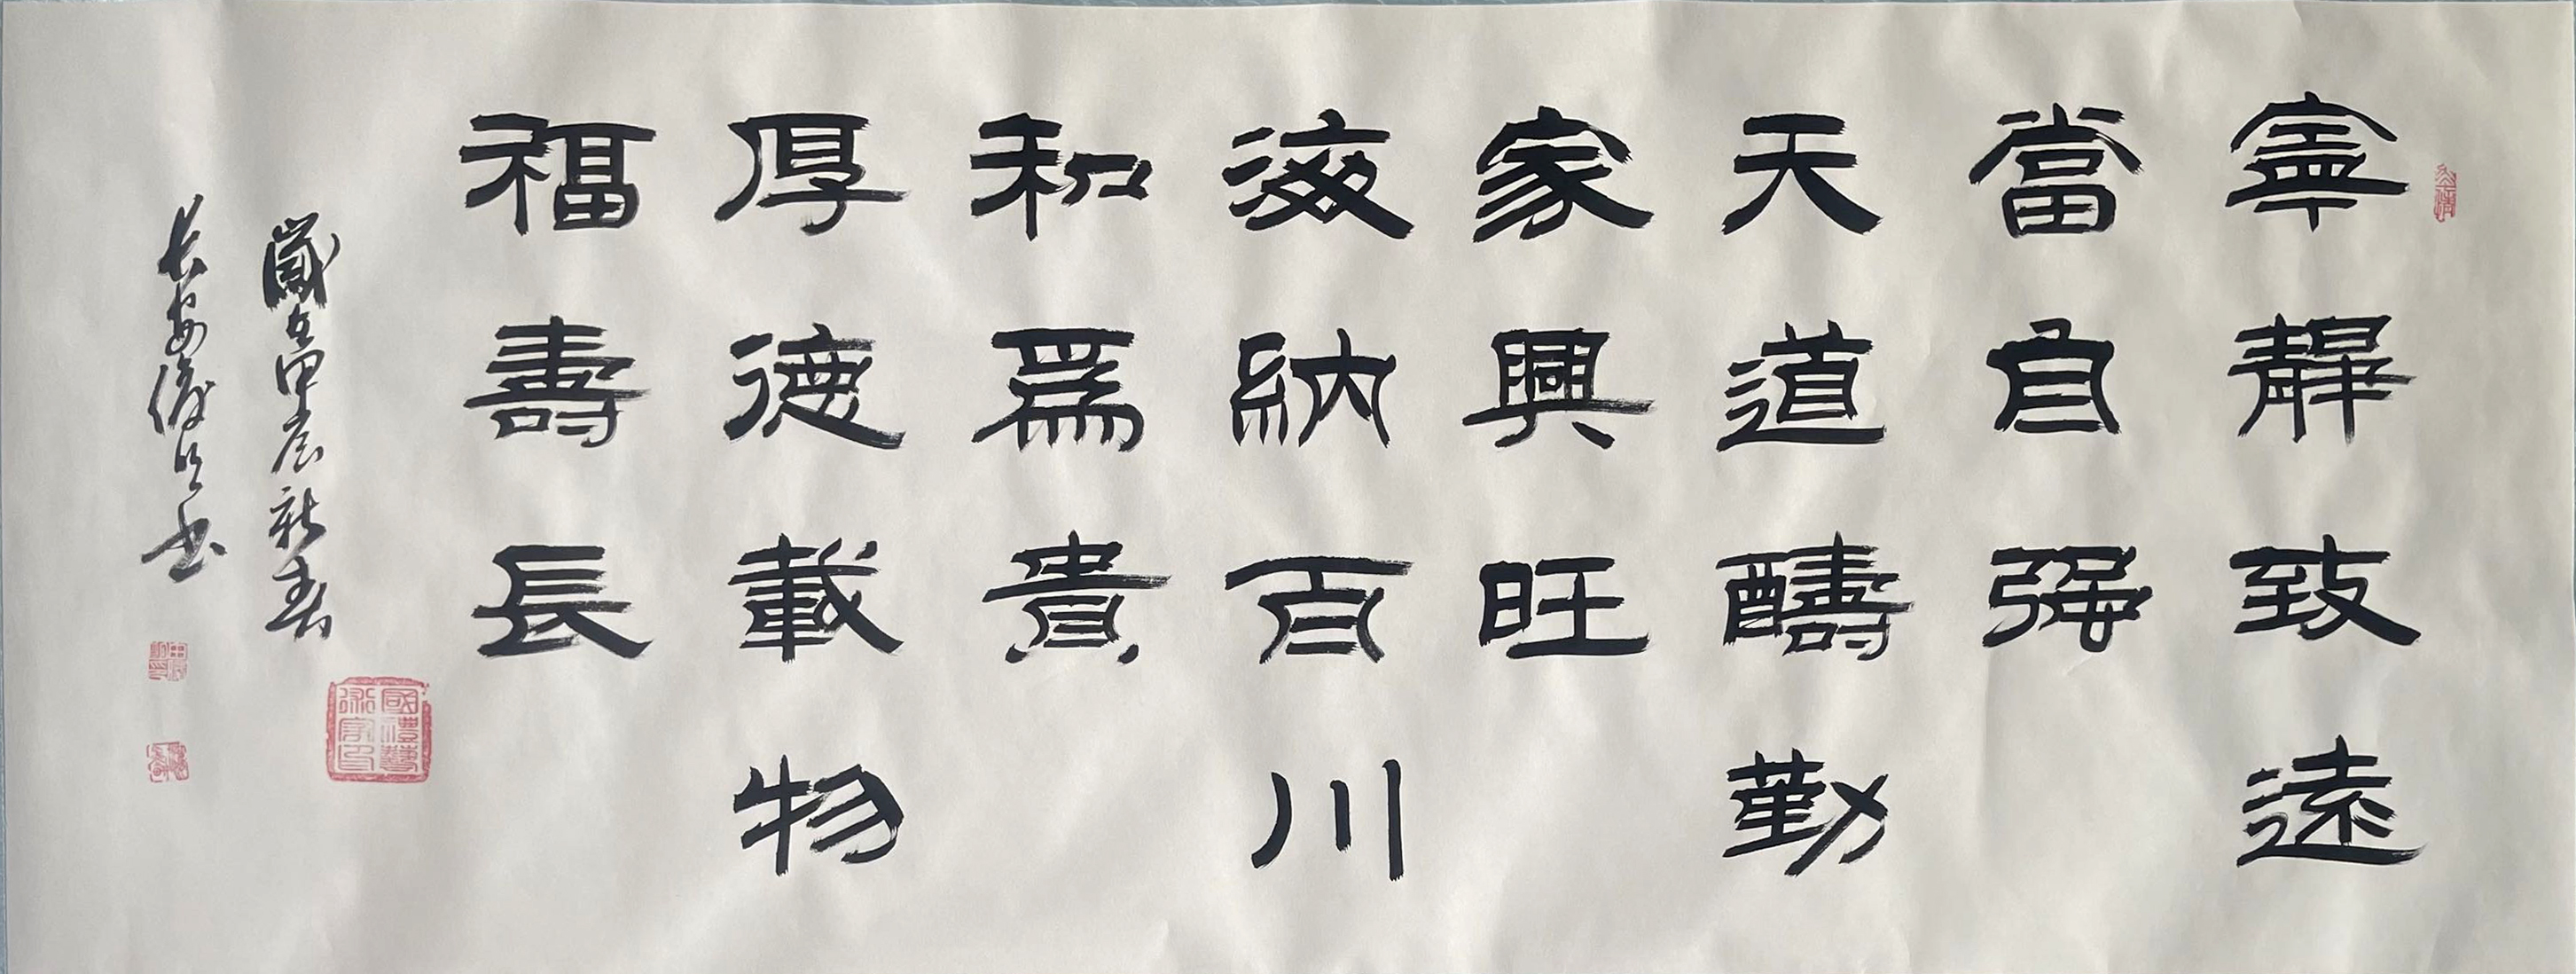 寧靜致遠
當自强
天道醻勤
家興旺
海納百川
和爲貴
厚德載物
福壽長
歲在甲辰新春
長安俊明书
國禮藝術家印